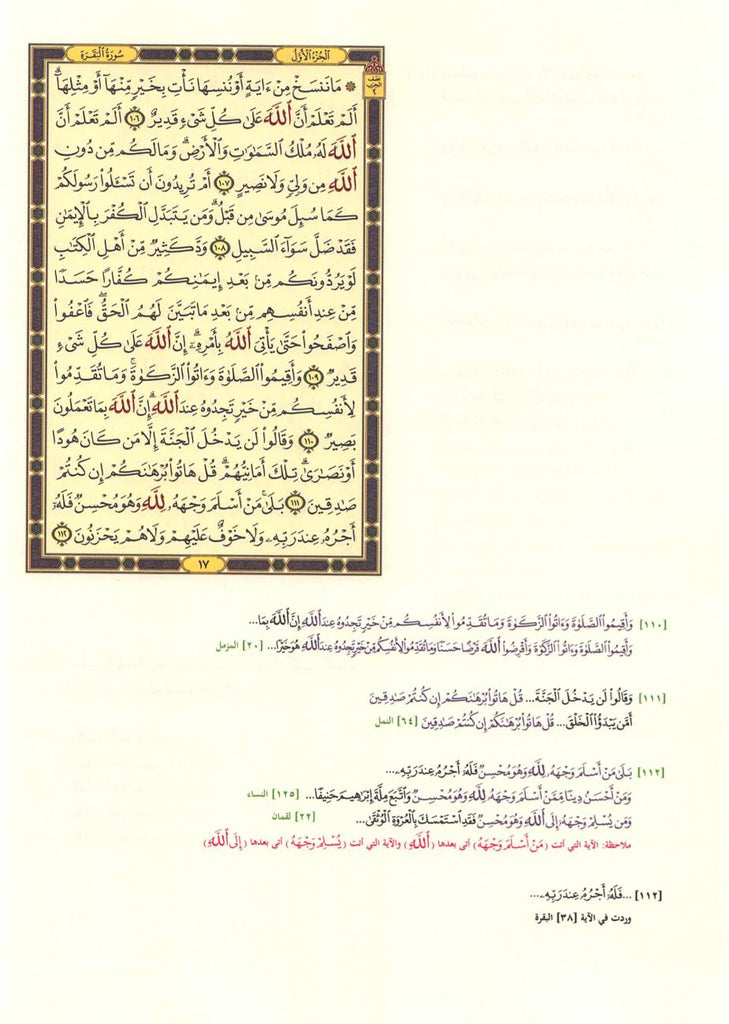 الجزء الأول
سورة البقرة
نصف الحزب ٢
۞ مَا نَنسَخْ مِنْ ءَايَةٍ أَوْ نُنسِهَا نَأْتِ بِخَيْرٍ مِّنْهَآ أَوْ مِثْلِهَآ ۗ
أَلَمْ تَعْلَمْ أَنَّ ٱللَّهَ عَلَىٰ كُلِّ شَىْءٍ قَدِيرٌ ١٠٦ أَلَمْ تَعْلَمْ أَنَّ
ٱللَّهَ لَهُۥ مُلْكُ ٱلسَّمَٰوَٰتِ وَٱلْأَرْضِ ۗ وَمَا لَكُم مِّن دُونِ
ٱللَّهِ مِن وَلِىٍّ وَلَا نَصِيرٍ ١٠٧ أَمْ تُرِيدُونَ أَن تَسْـَٔلُوا۟ رَسُولَكُمْ
كَمَا سُئِلَ مُوسَىٰ مِن قَبْلُ ۗ وَمَن يَتَبَدَّلِ ٱلْكُفْرَ بِٱلْإِيمَٰنِ
فَقَدْ ضَلَّ سَوَآءَ ٱلسَّبِيلِ ١٠٨ وَدَّ كَثِيرٌ مِّنْ أَهْلِ ٱلْكِتَٰبِ
لَوْ يَرُدُّونَكُم مِّنۢ بَعْدِ إِيمَٰنِكُمْ كُفَّارًا حَسَدًا
مِّنْ عِندِ أَنفُسِهِم مِّنۢ بَعْدِ مَا تَبَيَّنَ لَهُمُ ٱلْحَقُّ ۖ فَٱعْفُوا۟
وَٱصْفَحُوا۟ حَتَّىٰ يَأْتِىَ ٱللَّهُ بِأَمْرِهِۦٓ ۗ إِنَّ ٱللَّهَ عَلَىٰ كُلِّ شَىْءٍ
قَدِيرٌ ١٠٩ وَأَقِيمُوا۟ ٱلصَّلَوٰةَ وَءَاتُوا۟ ٱلزَّكَوٰةَ ۚ وَمَا تُقَدِّمُوا۟
لِأَنفُسِكُم مِّنْ خَيْرٍ تَجِدُوهُ عِندَ ٱللَّهِ ۗ إِنَّ ٱللَّهَ بِمَا تَعْمَلُونَ
بَصِيرٌ ١١٠ وَقَالُوا۟ لَن يَدْخُلَ ٱلْجَنَّةَ إِلَّا مَن كَانَ هُودًا
أَوْ نَصَٰرَىٰ ۗ تِلْكَ أَمَانِيُّهُمْ ۗ قُلْ هَاتُوا۟ بُرْهَٰنَكُمْ إِن كُنتُمْ
صَٰدِقِينَ ١١١ بَلَىٰ مَنْ أَسْلَمَ وَجْهَهُۥ لِلَّهِ وَهُوَ مُحْسِنٌ فَلَهُۥٓ
أَجْرُهُۥ عِندَ رَبِّهِۦ وَلَا خَوْفٌ عَلَيْهِمْ وَلَا هُمْ يَحْزَنُونَ ١١٢
١٧
[١١٠] وَأَقِيمُوا۟ ٱلصَّلَوٰةَ وَءَاتُوا۟ ٱلزَّكَوٰةَ وَمَا تُقَدِّمُوا۟ لِأَنفُسِكُم مِّنْ خَيْرٍ تَجِدُوهُ عِندَ ٱللَّهِ إِنَّ ٱللَّهَ بِمَا...
وَأَقِيمُوا۟ ٱلصَّلَوٰةَ وَءَاتُوا۟ ٱلزَّكَوٰةَ وَأَقْرِضُوا۟ ٱللَّهَ قَرْضًا حَسَنًا وَمَا تُقَدِّمُوا۟ لِأَنفُسِكُم مِّنْ خَيْرٍ تَجِدُوهُ عِندَ ٱللَّهِ هُوَ خَيْرًا... [٢٠] المزمل
[١١١] وَقَالُوا۟ لَن يَدْخُلَ ٱلْجَنَّةَ... قُلْ هَاتُوا۟ بُرْهَٰنَكُمْ إِن كُنتُمْ صَٰدِقِينَ
أَمَّن يَبْدَؤُا۟ ٱلْخَلْقَ... قُلْ هَاتُوا۟ بُرْهَٰنَكُمْ إِن كُنتُمْ صَٰدِقِينَ [٦٤] النمل
[١١٢] بَلَىٰ مَنْ أَسْلَمَ وَجْهَهُۥ لِلَّهِ وَهُوَ مُحْسِنٌ فَلَهُۥٓ أَجْرُهُۥ عِندَ رَبِّهِۦ...
وَمَنْ أَحْسَنُ دِينًا مِّمَّنْ أَسْلَمَ وَجْهَهُۥ لِلَّهِ وَهُوَ مُحْسِنٌ وَٱتَّبَعَ مِلَّةَ إِبْرَٰهِيمَ حَنِيفًا... [١٢٥] النساء
وَمَن يُسْلِمْ وَجْهَهُۥٓ إِلَى ٱللَّهِ وَهُوَ مُحْسِنٌ فَقَدِ ٱسْتَمْسَكَ بِٱلْعُرْوَةِ ٱلْوُثْقَىٰ... [٢٢] لقمان
ملاحظة: الآية التي أتت (مَنْ أَسْلَمَ وَجْهَهُ) أتى بعدها (ٱللَّهِ) والآية التي أتت (يُسْلِمْ وَجْهَهُ) أتى بعدها (إِلَى ٱللَّهِ)
[١١٢] ...فَلَهُۥٓ أَجْرُهُۥ عِندَ رَبِّهِۦ...
وردت في الآية [٣٨] البقرة